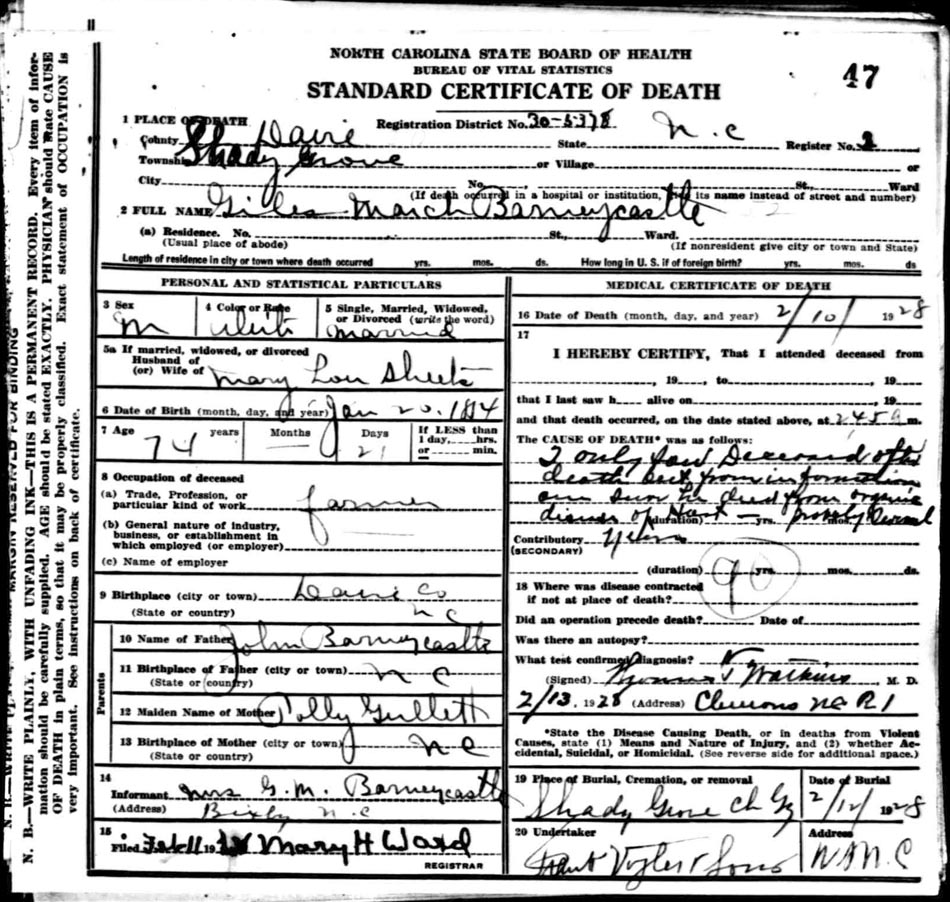 NORTH CAROLINA STATE BOARD OF HEALTH
BUREAU OF VITAL STATISTICS
STANDARD CERTIFICATE OF DEATH
47
1 PLACE OF DEATH
Registration District No. 30-5378
County Davie State N.C Register No. 2
Township Shady Grove or Village or
City No. St., Ward
(If death occurred in a hospital or institution, its name instead of street and number)
2 FULL NAME Giles March Barneycastle
(a) Residence. No. St., Ward.
(Usual place of abode) (If nonresident give city or town and State)
Length of residence in city or town where death occurred yrs. mos. ds. How long in U. S. if of foreign birth? yrs. mos. ds
PERSONAL AND STATISTICAL PARTICULARS
3 Sex 4 Color or Race 5 Single, Married, Widowed, or Divorced (write the word)
M White married
5a If married, widowed, or divorced
Husband of
(or) Wife of Mary Lou Sheets
6 Date of Birth (month, day, and year) Jan 20. 1854
7 Age 74 years Months Days 21 If LESS than 1 day, hrs. or min.
8 Occupation of deceased
(a) Trade, Profession, or
particular kind of work farmer
(b) General nature of industry,
business, or establishment in
which employed (or employer)
(c) Name of employer
9 Birthplace (city or town) Davie Co
(State or country) N C
Parents
10 Name of Father John Barneycastle
11 Birthplace of Father (city or town) N C
(State or country)
12 Maiden Name of Mother Polly Gullett
13 Birthplace of Mother (city or town) N C
(State or country)
14
Informant Mrs G. M. Barneycastle
(Address) Bixby N.C
15
Filed Feb 11 19 28 Mary H Ward
REGISTRAR
MEDICAL CERTIFICATE OF DEATH
16 Date of Death (month, day, and year) 2/10/ 1928
17
I HEREBY CERTIFY, That I attended deceased from
, 19 , to , 19
that I last saw h alive on , 19
and that death occurred, on the date stated above, at 2 45 a m.
The CAUSE OF DEATH* was as follows:
I only saw Deceased after
death but from information
am sure he died from organic
disease of Heart — (duration) yrs. probably mos. Several
Contributory Years
(SECONDARY)
(duration) yrs. mos. ds.
90
18 Where was disease contracted
if not at place of death?
Did an operation precede death? Date of
Was there an autopsy?
What test confirmed diagnosis?
(Signed) Watkins, M. D.
2/13. 1928 (Address) Clemmons NC R1
*State the Disease Causing Death, or in deaths from Violent
Causes, state (1) Means and Nature of Injury, and (2) whether Ac-
cidental, Suicidal, or Homicidal. (See reverse side for additional space.)
19 Place of Burial, Cremation, or removal Date of Burial
Shady Grove Ch 2/12/ 1928
20 Undertaker Address
Frank Vogler & Sons W S N. C
MARGIN RESERVED FOR BINDING
N. B.—WRITE PLAINLY, WITH UNFADING INK—THIS IS A PERMANENT RECORD. Every item of infor-
mation should be carefully supplied. AGE should be stated EXACTLY. PHYSICIAN should state CAUSE
OF DEATH in plain terms, so that it may be properly classified. Exact statement of OCCUPATION is
very important. See instructions on back of certificate.